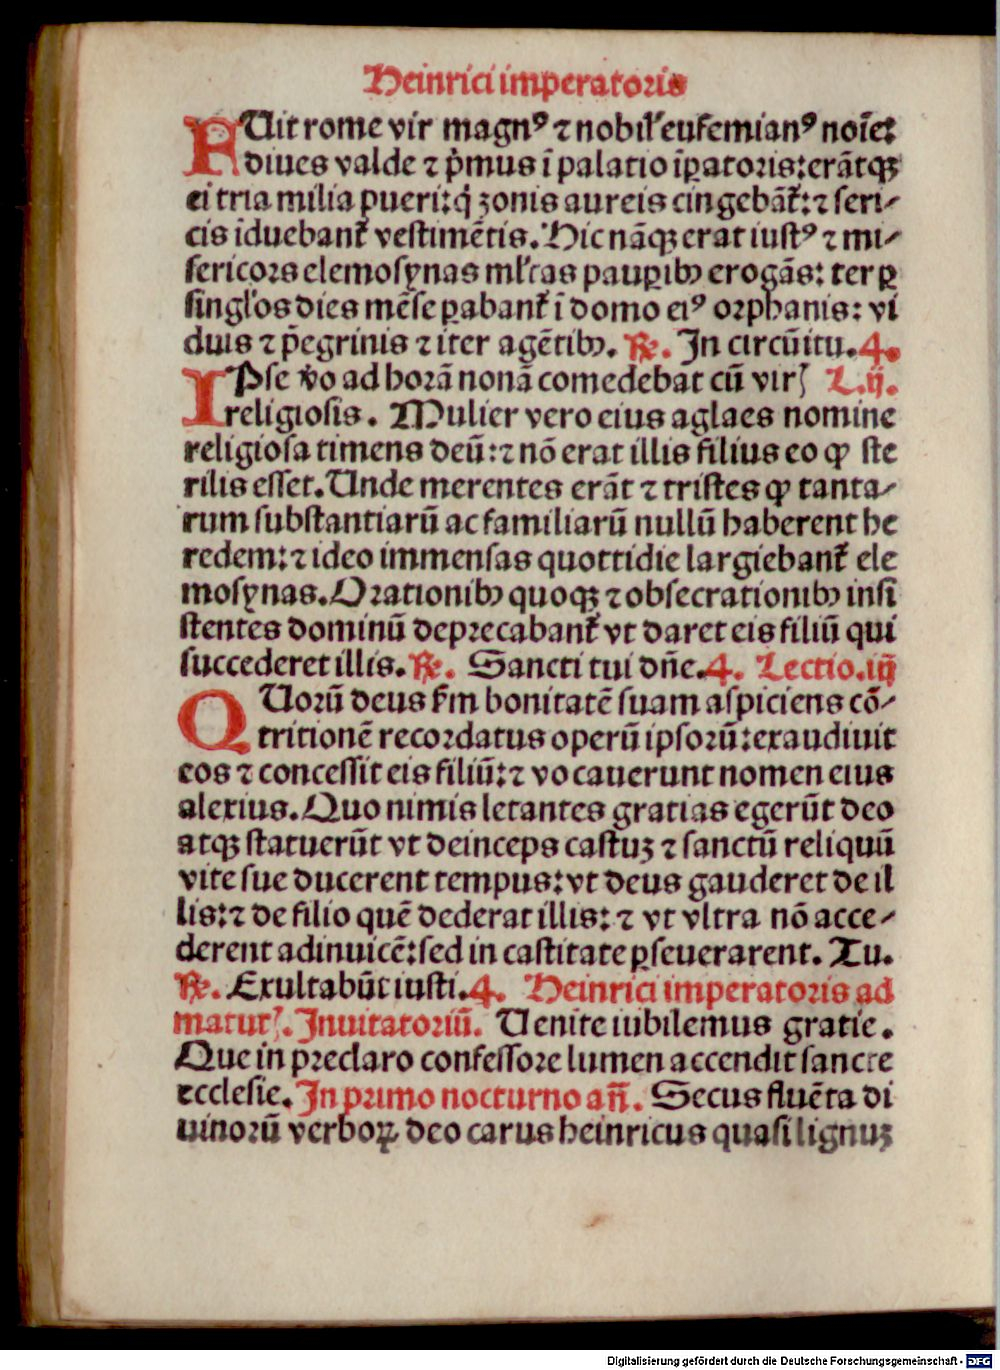 Heinrici imperatoris
FUit rome vir magnꝰ ⁊ nobilꝭ eufemianꝰ noīe:
diues valde ⁊ pͥmus ī palatio īꝑatoris: erātqꝫ
ei tria milia pueri: qͥ zonis aureis cingebāt᷑: ⁊ seri⸗
cis īduebant᷑ vestimētis. Hic nāqꝫ erat iustꝰ ⁊ mi⸗
sericors elemosynas ml̓tas pauꝑibꝰ erogās: ter ꝑ
singl̓os dies mēse ꝑabant᷑ ī domo eiꝰ orphanis: vi
duis ⁊ p̄egrinis ⁊ iter agētibꝰ. ℟. In circūitu. 4.
IPse v̄o ad horā nonā comedebat cū virꝭ L. ij.
religiosis. Mulier vero eius aglaes nomine
religiosa timens deū: ⁊ nō erat illis filius eo ꝙ ste
rilis esset. Unde merentes erāt ⁊ tristes ꝙ tanta⸗
rum substantiarū ac familiarū nullū haberent he
redem: ⁊ ideo immensas quottidie largiebant᷑ ele
mosynas. Orationibꝰ quoqꝫ ⁊ obsecrationibꝰ insi
stentes dominū deprecabant᷑ vt daret eis filiū qui
succederet illis. ℟. Sancti tui dn̄e. 4. Lectio. iij
QUorū deus ẜm bonitatē suam aspiciens cō⸗
tritionē recordatus operū ipsorū: exaudiuit
eos ⁊ concessit eis filiū: ⁊ vocauerunt nomen eius
alexius. Quo nimis letantes gratias egerūt deo
atqꝫ statuerūt vt deinceps castuꝫ ⁊ sanctū reliquū
vite sue ducerent tempus: vt deus gauderet de il
lis: ⁊ de filio quē dederat illis: ⁊ vt vltra nō acce⸗
derent adinuicē: sed in castitate ꝑseuerarent. Tu.
℟. Exultabūt iusti. 4. Heinrici imperatoris ad
matutꝭ. Inuitatoriū. Uenite iubilemus gratie.
Que in preclaro confessore lumen accendit sancte
ecclesie. In primo nocturno an̄. Secus fluēta di
uinorū verboꝝ deo carus heinricus quasi lignuꝫ
Digitalisierung gefördert durch die Deutsche Forschungsgemeinschaft - DFG